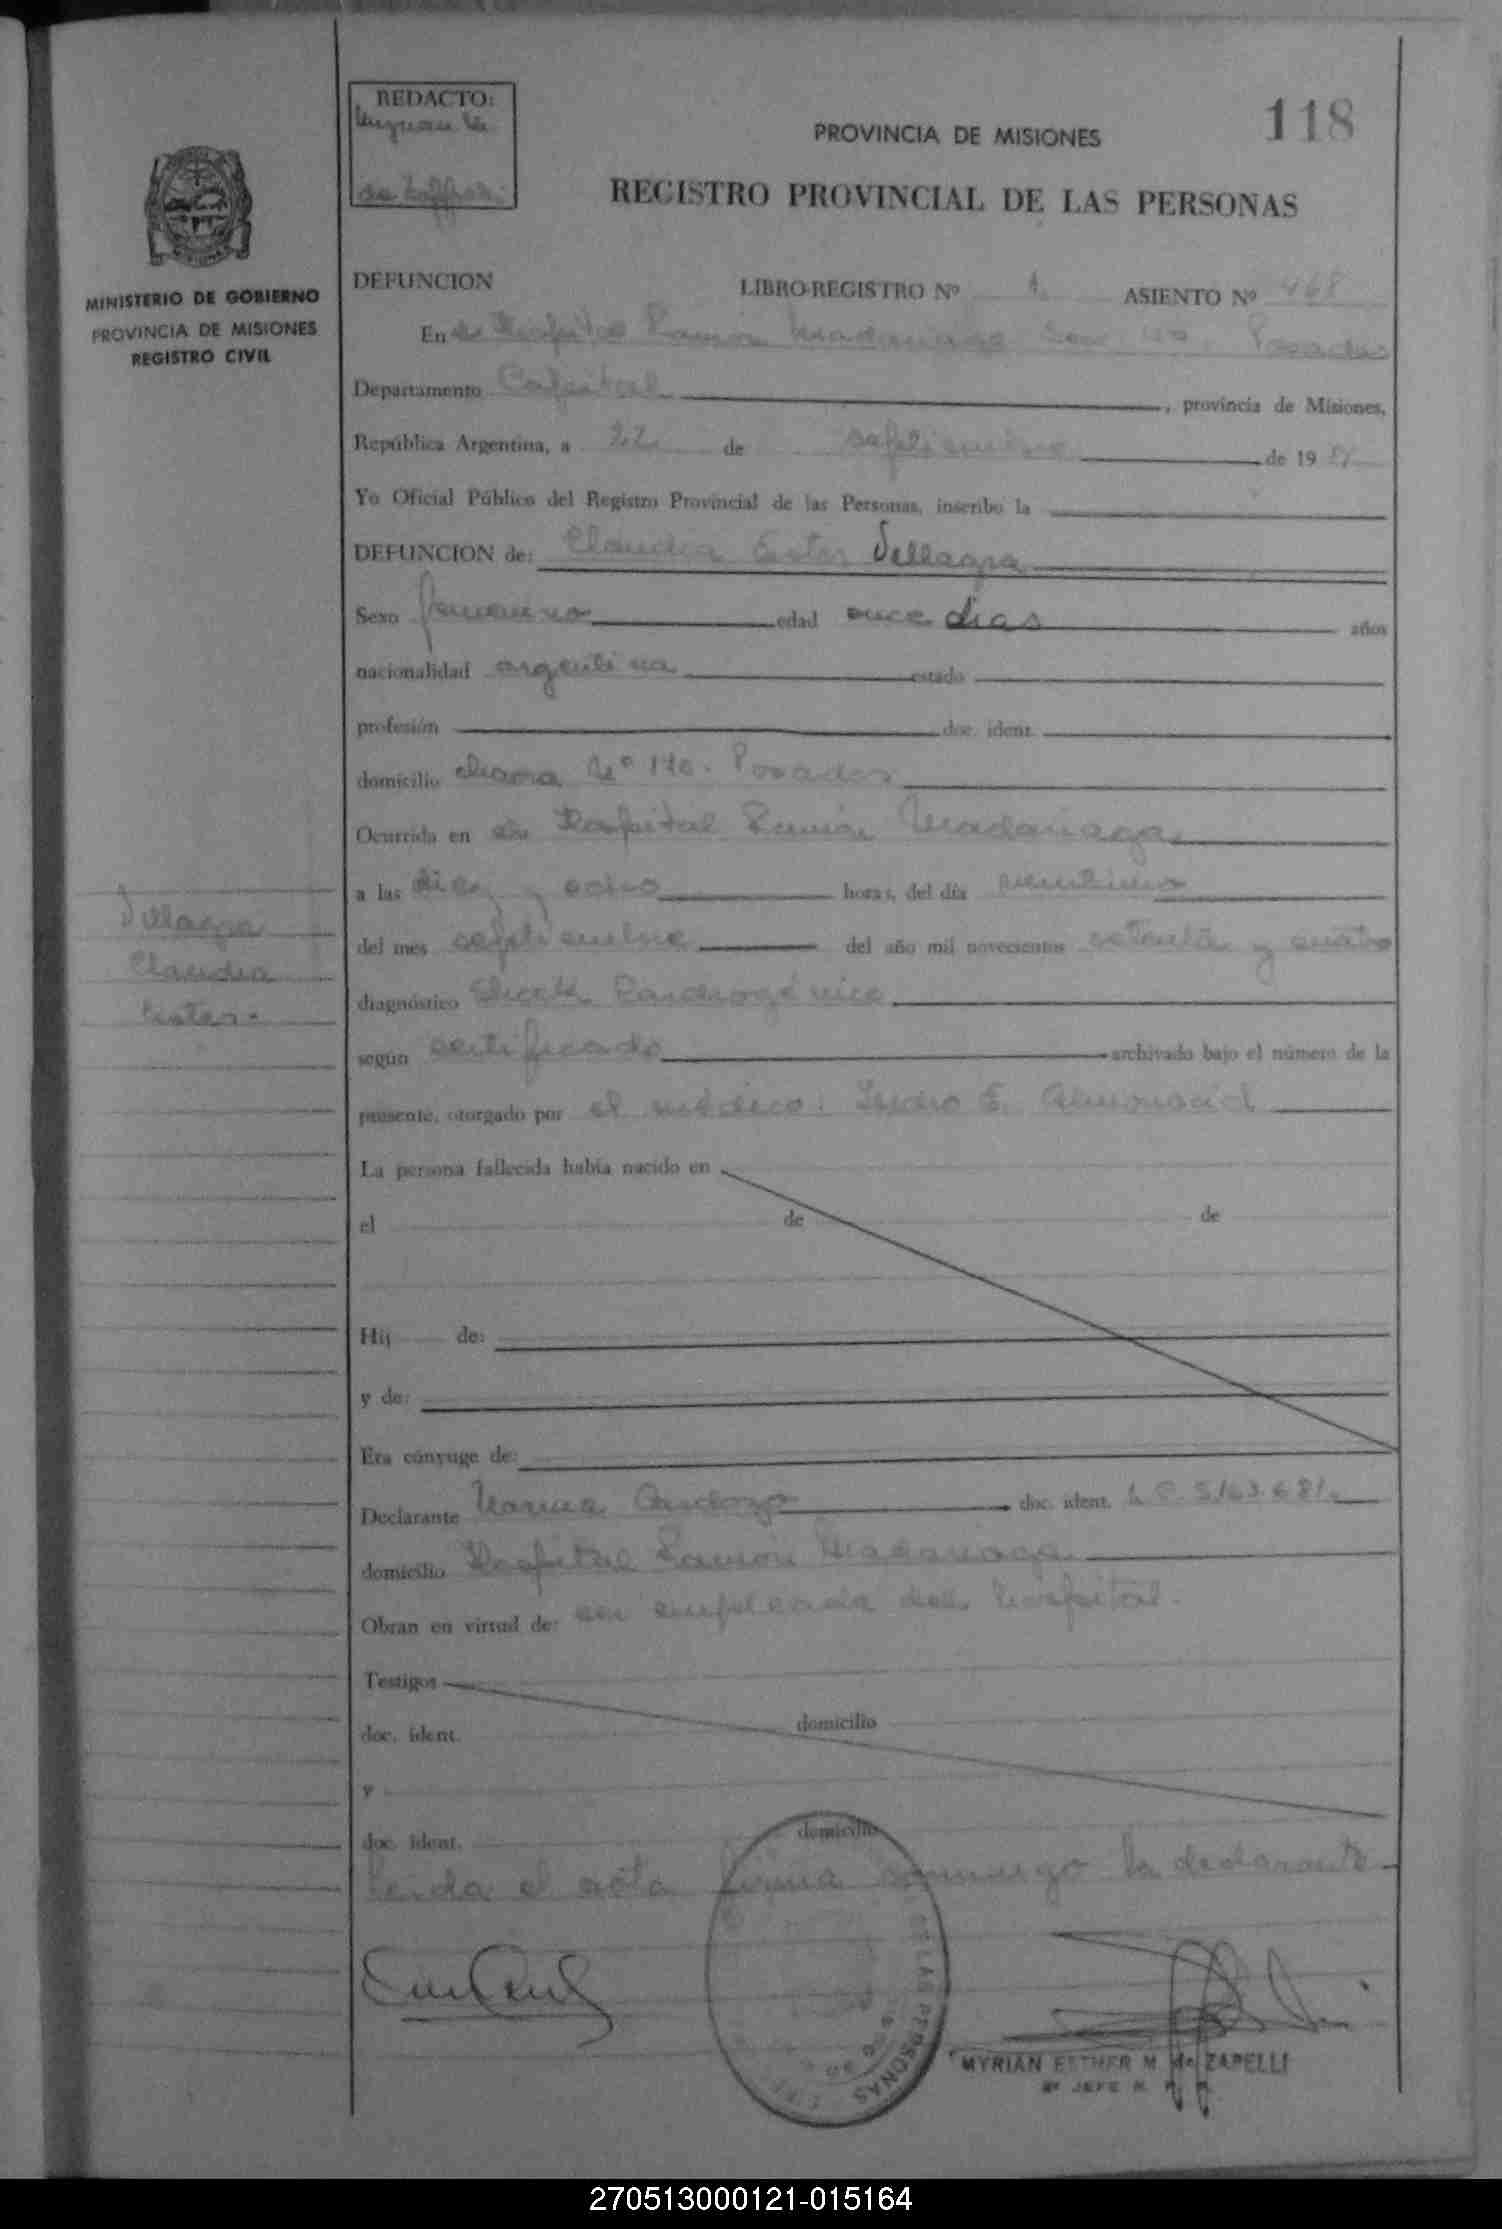 118
REDACTO:
PROVINCIA DE MISIONES
REGISTRO PROVINCIAL DE LAS PERSONAS
MINISTERIO DE GOBIERNO
PROVINCIA DE MISIONES
REGISTRO CIVIL
DEFUNCION LIBRO-REGISTRO Nº 1. ASIENTO Nº 468
En el Hospital Ramón Madariaga Posadas
Departamento Capital, provincia de Misiones,
República Argentina, a 22 de septiembre de 19
Yo Oficial Público del Registro Provincial de las Personas, inscribo la
DEFUNCION de: Claudia Ester Villagra
Sexo femenino edad once dias años
nacionalidad argentina estado
profesión doc. ident.
domicilio chacra Nº 170. Posadas
Ocurrida en el Hospital Ramón Madariaga
a las diez y ocho horas, del día veintiuno
del mes septiembre del año mil novecientos setenta y cuatro
diagnóstico Shock Cardiogénico
según certificado archivado bajo el número de la
presente, otorgado por el médico: Isidro E. Almonacid
La persona fallecida había nacido en
el de de
Hij de:
y de:
Era cónyuge de:
Declarante Norma Cardozo doc. ident. L.C. 5.163.681.
domicilio Hospital Ramón Madariaga
Obran en virtud de: ser empleada del hospital.
Testigos
doc. ident. domicilio
y
doc. ident. domicilio
leida el acta firma conmigo la declarante
Villagra
Claudia
Ester.
DE LAS PERSONAS
MYRIAN ESTHER M. de ZAPELLI
JEFE R. P. P.
270513000121-015164